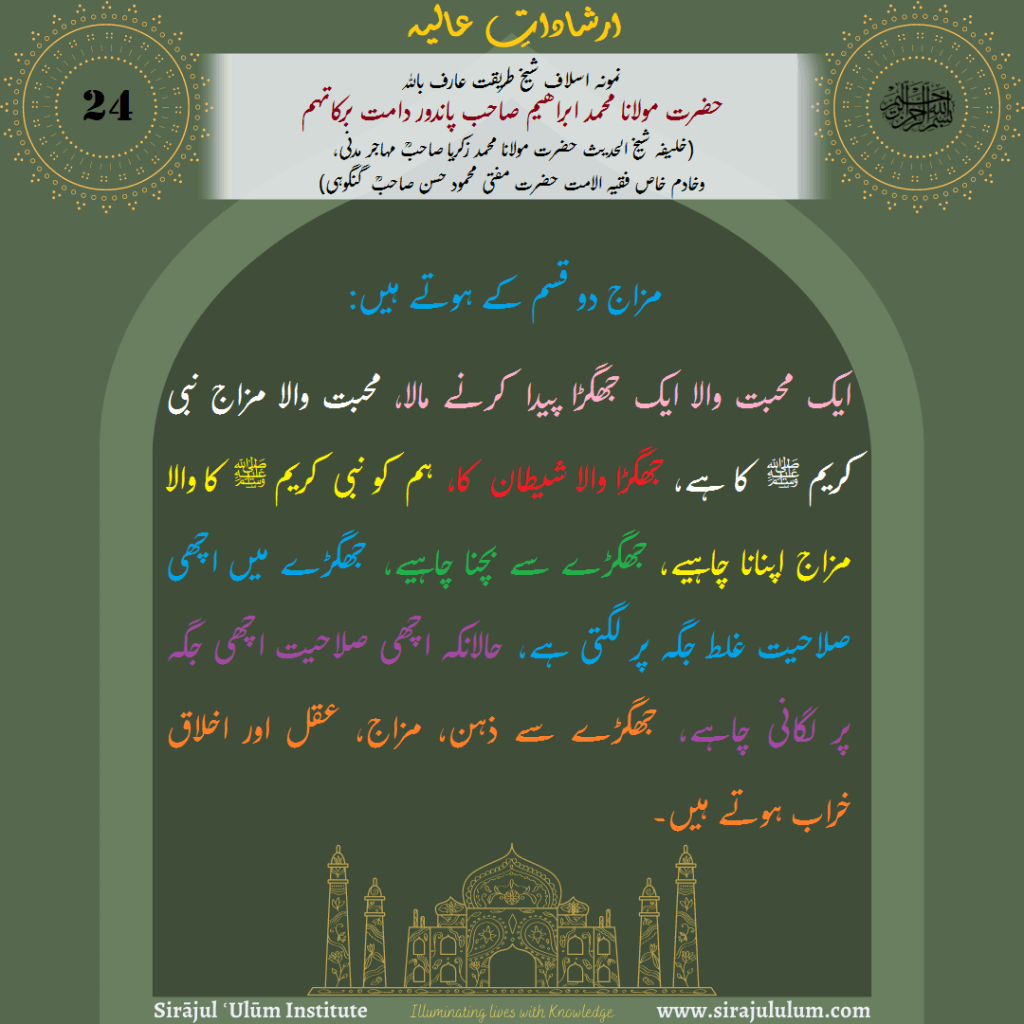 ارشاداتِ عالیہ
24
نمونہ اسلاف شیخ طریقت عارف باللہ
حضرت مولانا محمد ابراھیم صاحب پاندور دامت برکاتہم
(خلیفہ شیخ الحدیث حضرت مولانا محمد زکریا صاحبؒ مہاجر مدنی،
وخادم خاص فقیہ الامت حضرت مفتی محمود حسن صاحبؒ گنگوہی)
بسم الله الرحمن الرحيم
مزاج دو قسم کے ہوتے ہیں:
ایک محبت والا ایک جھگڑا پیدا کرنے مالا، محبت والا مزاج نبی
کریم ﷺ کا ہے، جھگڑا والا شیطان کا، ہم کو نبی کریم ﷺ کا والا
مزاج اپنانا چاہیے، جھگڑے سے بچنا چاہیے، جھگڑے میں اچھی
صلاحیت غلط جگہ پر لگتی ہے، حالانکہ اچھی صلاحیت اچھی جگہ
پر لگانی چاہے، جھگڑے سے ذہن، مزاج، عقل اور اخلاق
خراب ہوتے ہیں۔
Sirājul ʿUlūm Institute
Illuminating lives with Knowledge
www.sirajululum.com